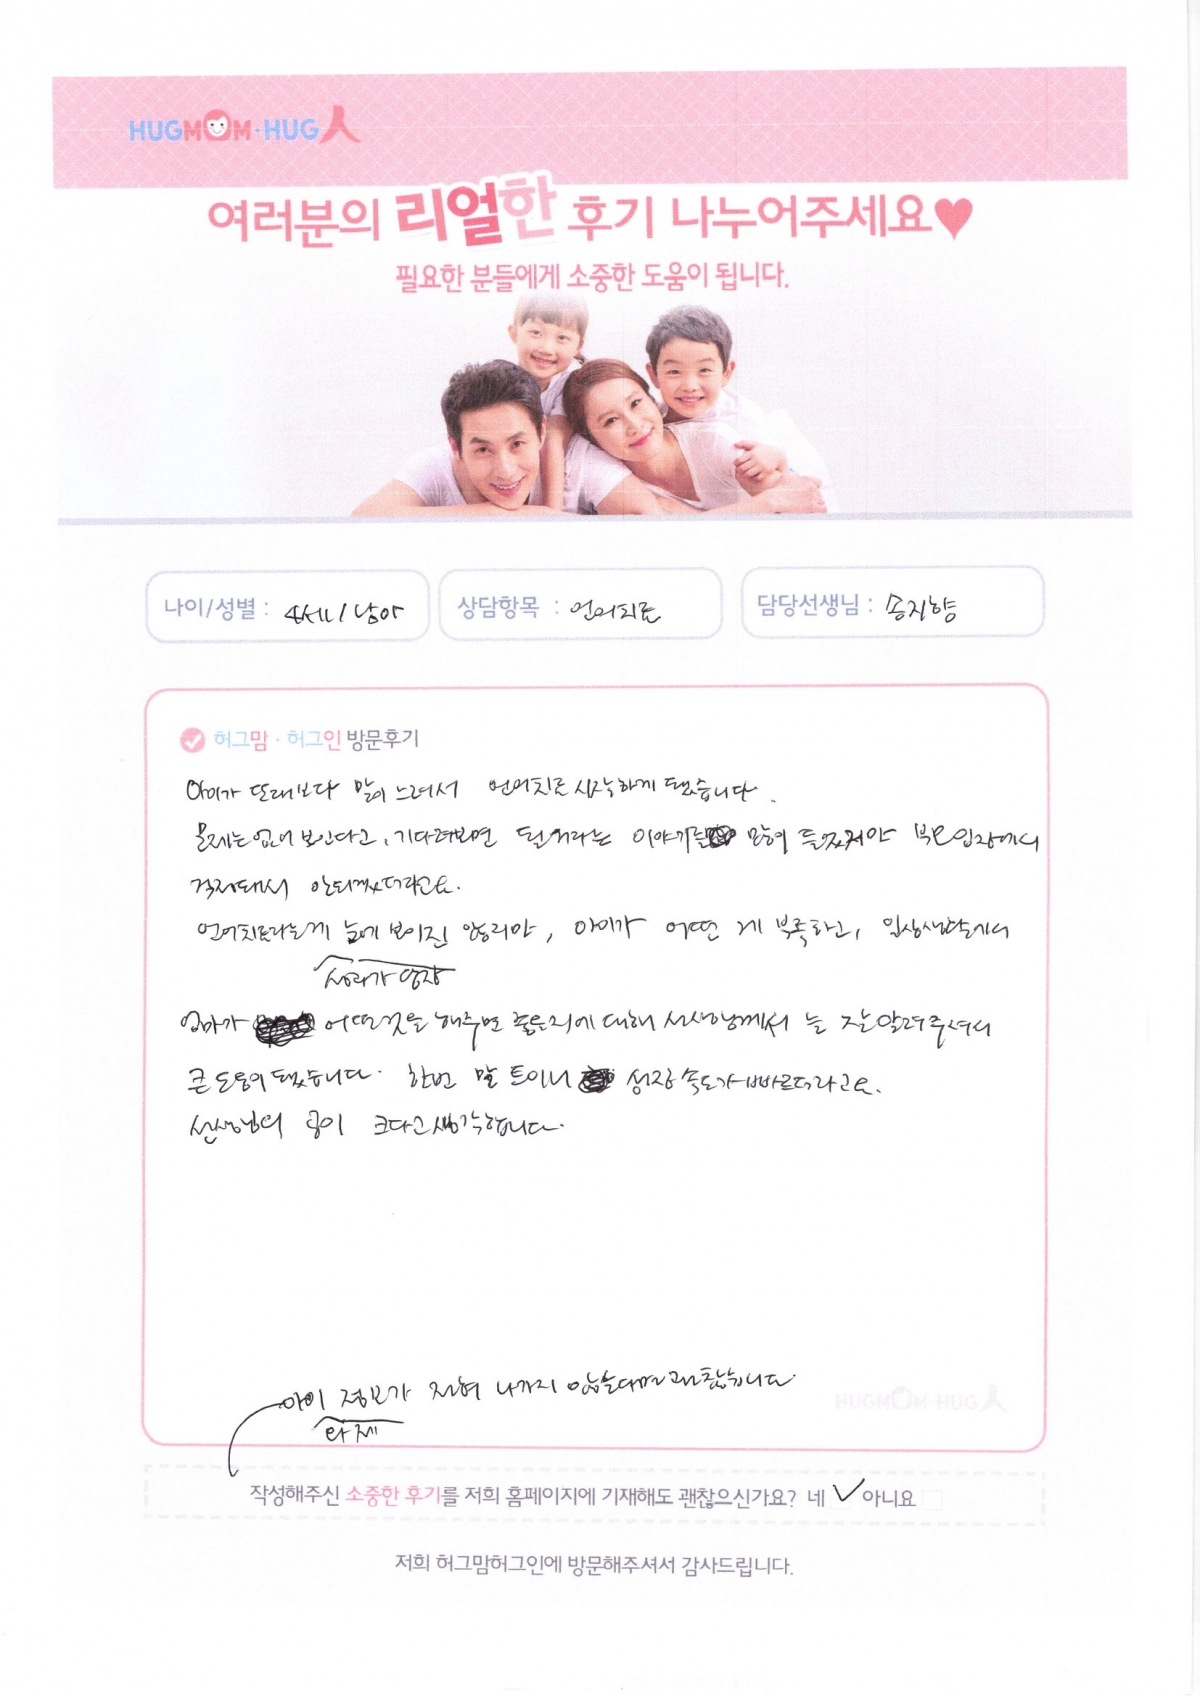 HUGMOM·HUG人
여러분의 리얼한 후기 나누어주세요♥
필요한 분들에게 소중한 도움이 됩니다.
나이/성별 : 4세/남아
상담항목 : 언어치료
담당선생님 : 송지향
허그맘·허그인 방문후기
아이가 또래보다 말이 느려서 언어치료 시작하게 됐습니다.
문제는 없어 보인다고, 기다려보면 될거라는 이야기를 많이 들었지만 부모입장에서
걱정돼서 안되겠더라고요.
언어치료라는게 눈에 보이진 않지만, 아이가 어떤 게 부족하고, 일상생활에서
성과가 당장
엄마가 어떤것을 해주면 좋은지에 대해 선생님께서 늘 잘 알려주셔서
큰 도움이 됐습니다. 한번 말 트이니 성장 속도가 빠르더라고요.
선생님의 공이 크다고 생각합니다.
아이 정보가 전혀 나가지 않는다면 괜찮습니다.
HUGMOM·HUG人
작성해주신 소중한 후기를 저희 홈페이지에 기재해도 괜찮으신가요? 네 ✓ 아니요
저희 허그맘허그인에 방문해주셔서 감사드립니다.